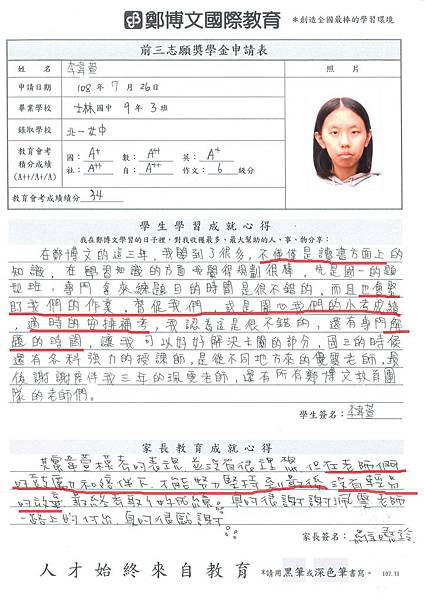 鄭博文國際教育 *創造全國最棒的學習環境
前三志願獎學金申請表
姓名 李韋萱 照片
申請日期 108年7月26日
畢業學校 士林國中 9年3班
錄取學校 北一女中
教育會考積分成績(A++/A+/A) 國：A+ 數：A++ 英：A+
社：A++ 自：A++ 作文：6級分
教育會考成績積分 34
學生學習成就心得
我在鄭博文學習的日子裡，對我收穫最多、最大幫助的人、事、物分享：
在鄭博文的這三年，我學到了很多，不僅僅是讀書方面上的
知識，在學習知識的方面
班，專門拿來練題目的時間是很不錯的，而且也會緊
盯我們的作業，督促我們，或是關心我們的小考成績
，適時的安排補考，我認為這是很不錯的，還有專門解
題的時間，讓我可以好好解決卡關的部分，國三的時候
還有各科強力的授課師，是從不同地方來的優質老師，最
後謝謝陪伴我三年的珮雯老師，還有所有鄭博文教育團
隊的老師們。
學生簽名：李韋萱
家長教育成就心得
其實韋萱模考的表現並沒有很理想，但在老師們
的鼓勵和陪伴下，才能努力堅持到最後，沒有輕易
的放棄，最終考取了好成績。真的很謝謝珮雯老師
一路上的付出，真的很感謝。
家長簽名：
人才始終來自教育 *請用黑筆或深色筆書寫。 107.11